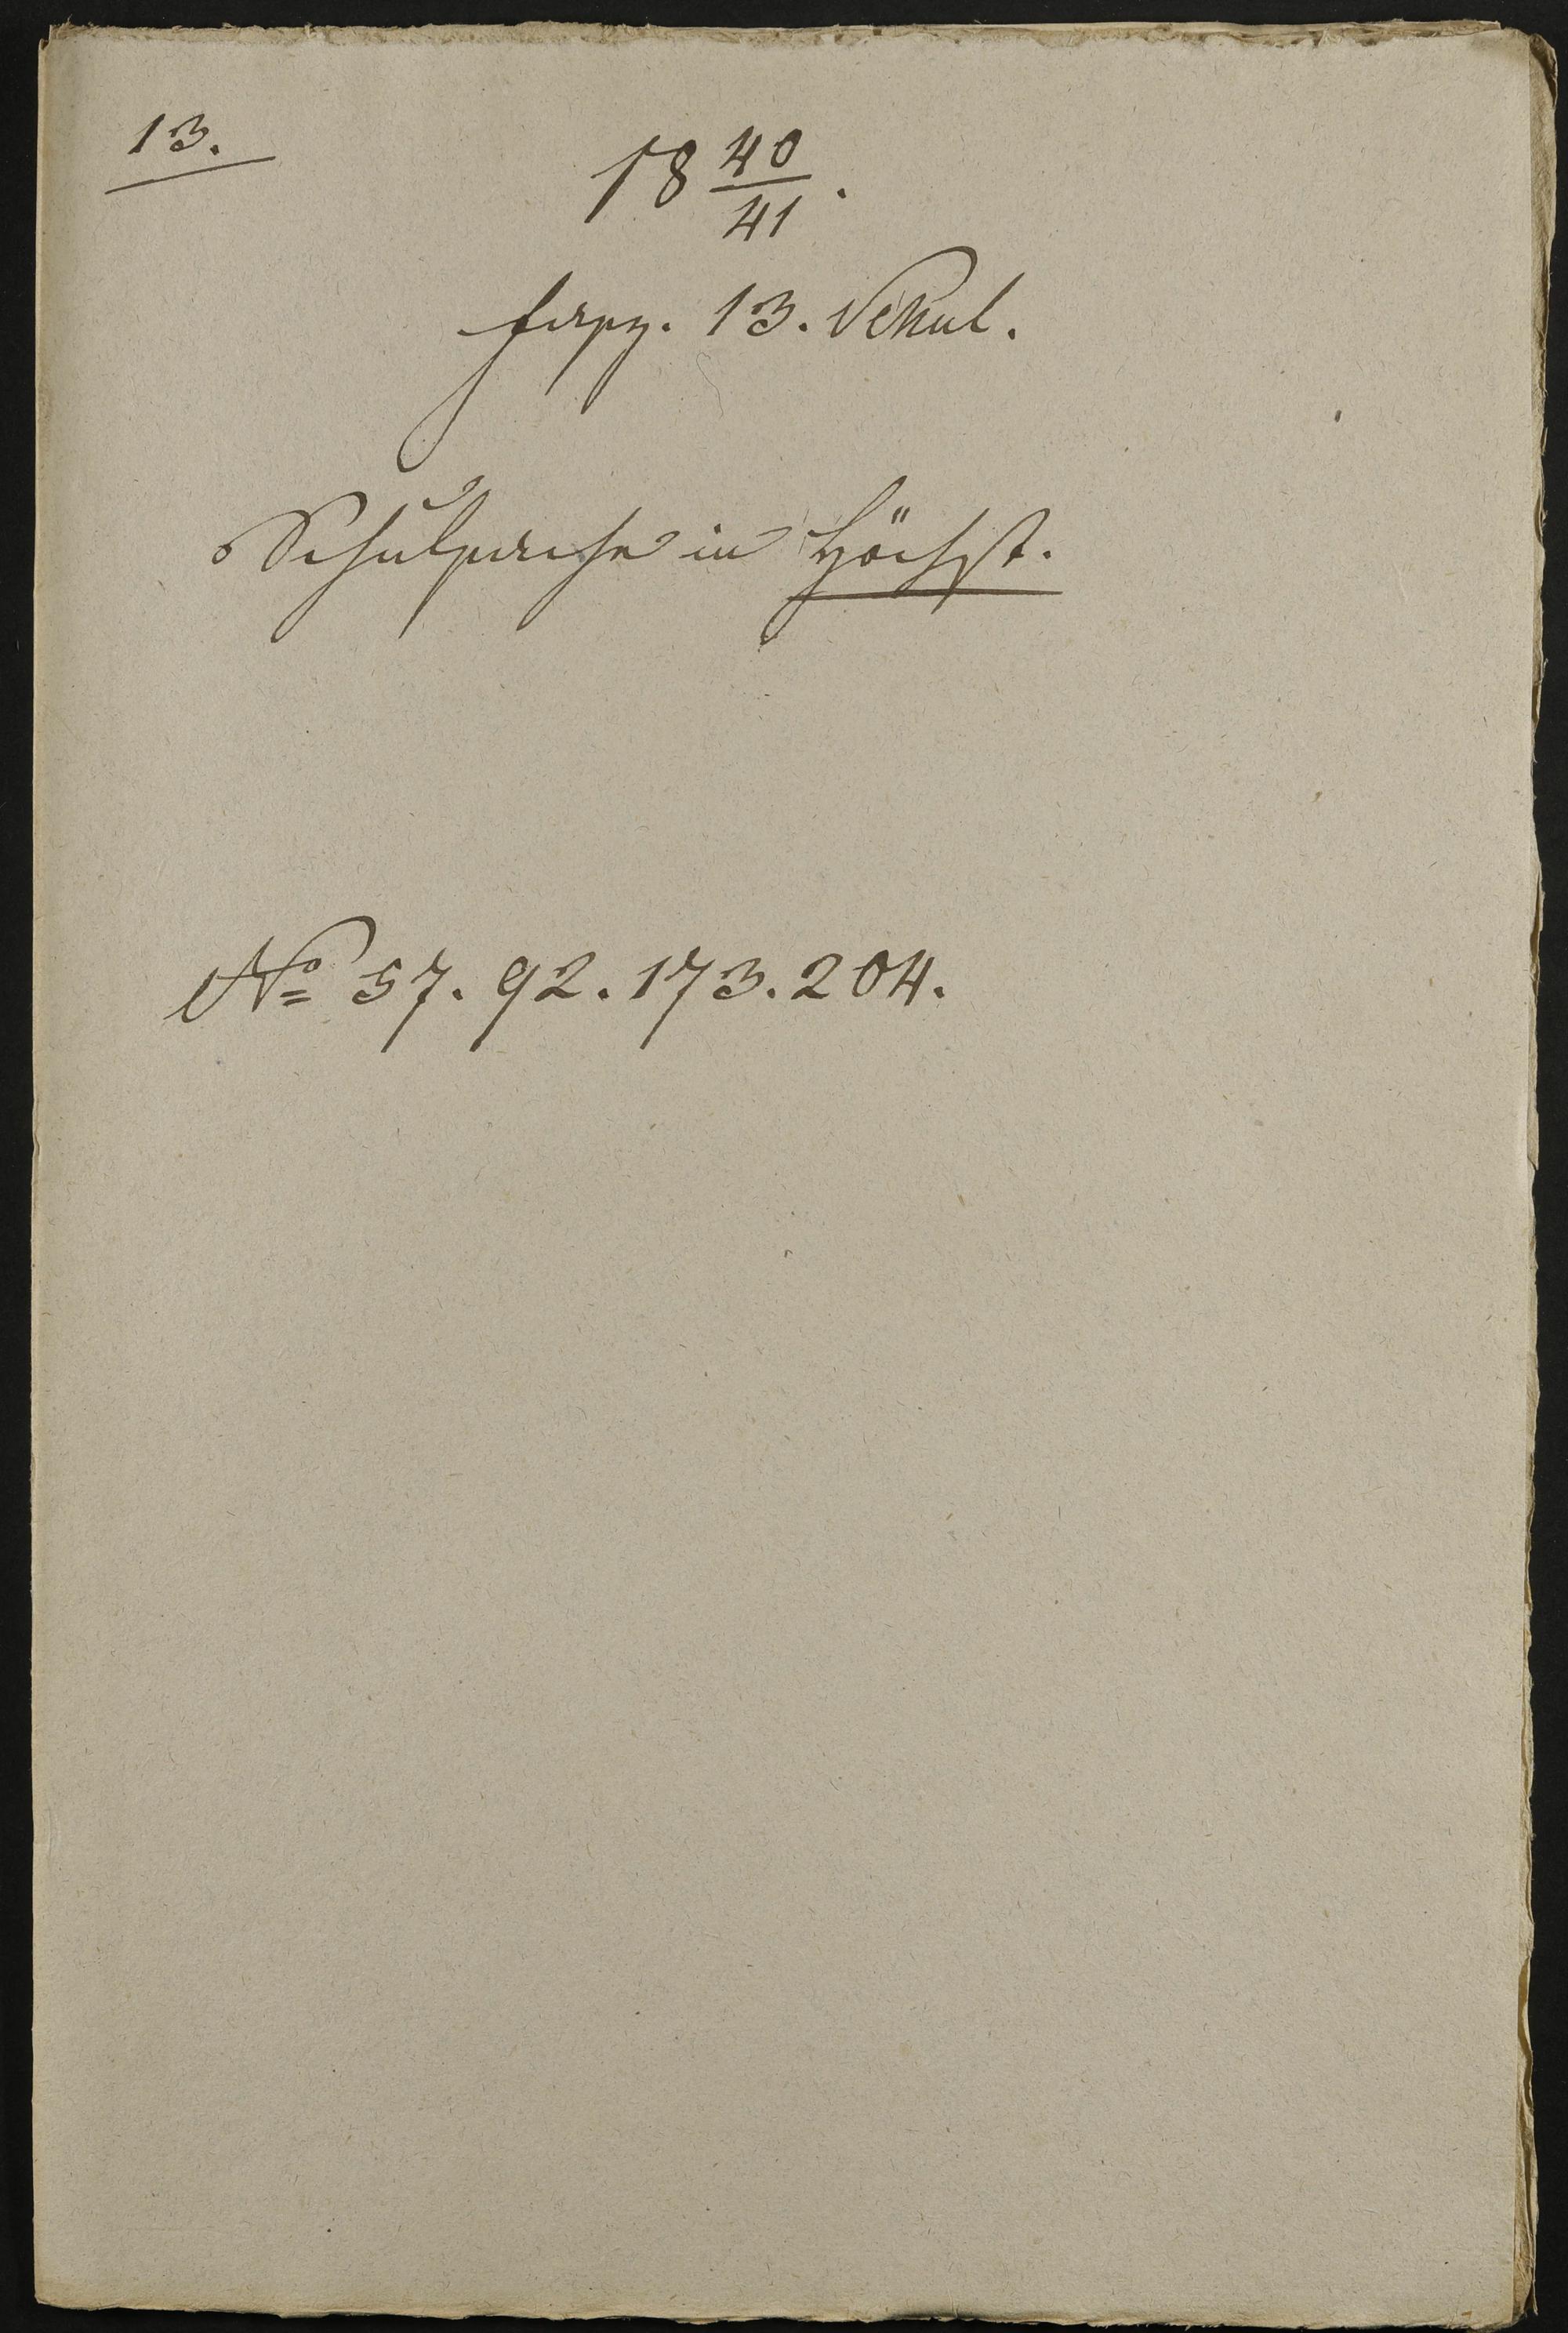 13.
18 40/41.
fasz. 13. Schul.
Schulsache in Höchst.
No 57. 92. 173. 204.